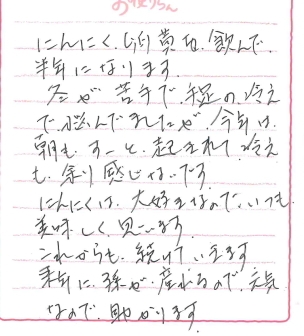 お便りらん
にんにく、卵黄を、飲んで、
半年になります。
冬が苦手で、手足の、冷え
で、悩んでましたが、今年は、
朝も、すーと、起きれて、冷え
も、余り感じないです。
にんにくは、大好きなので、いつも
美味しく、思います。
これからも、続けていきます
来年に、孫が、産れるので、元気
なので、助かります。